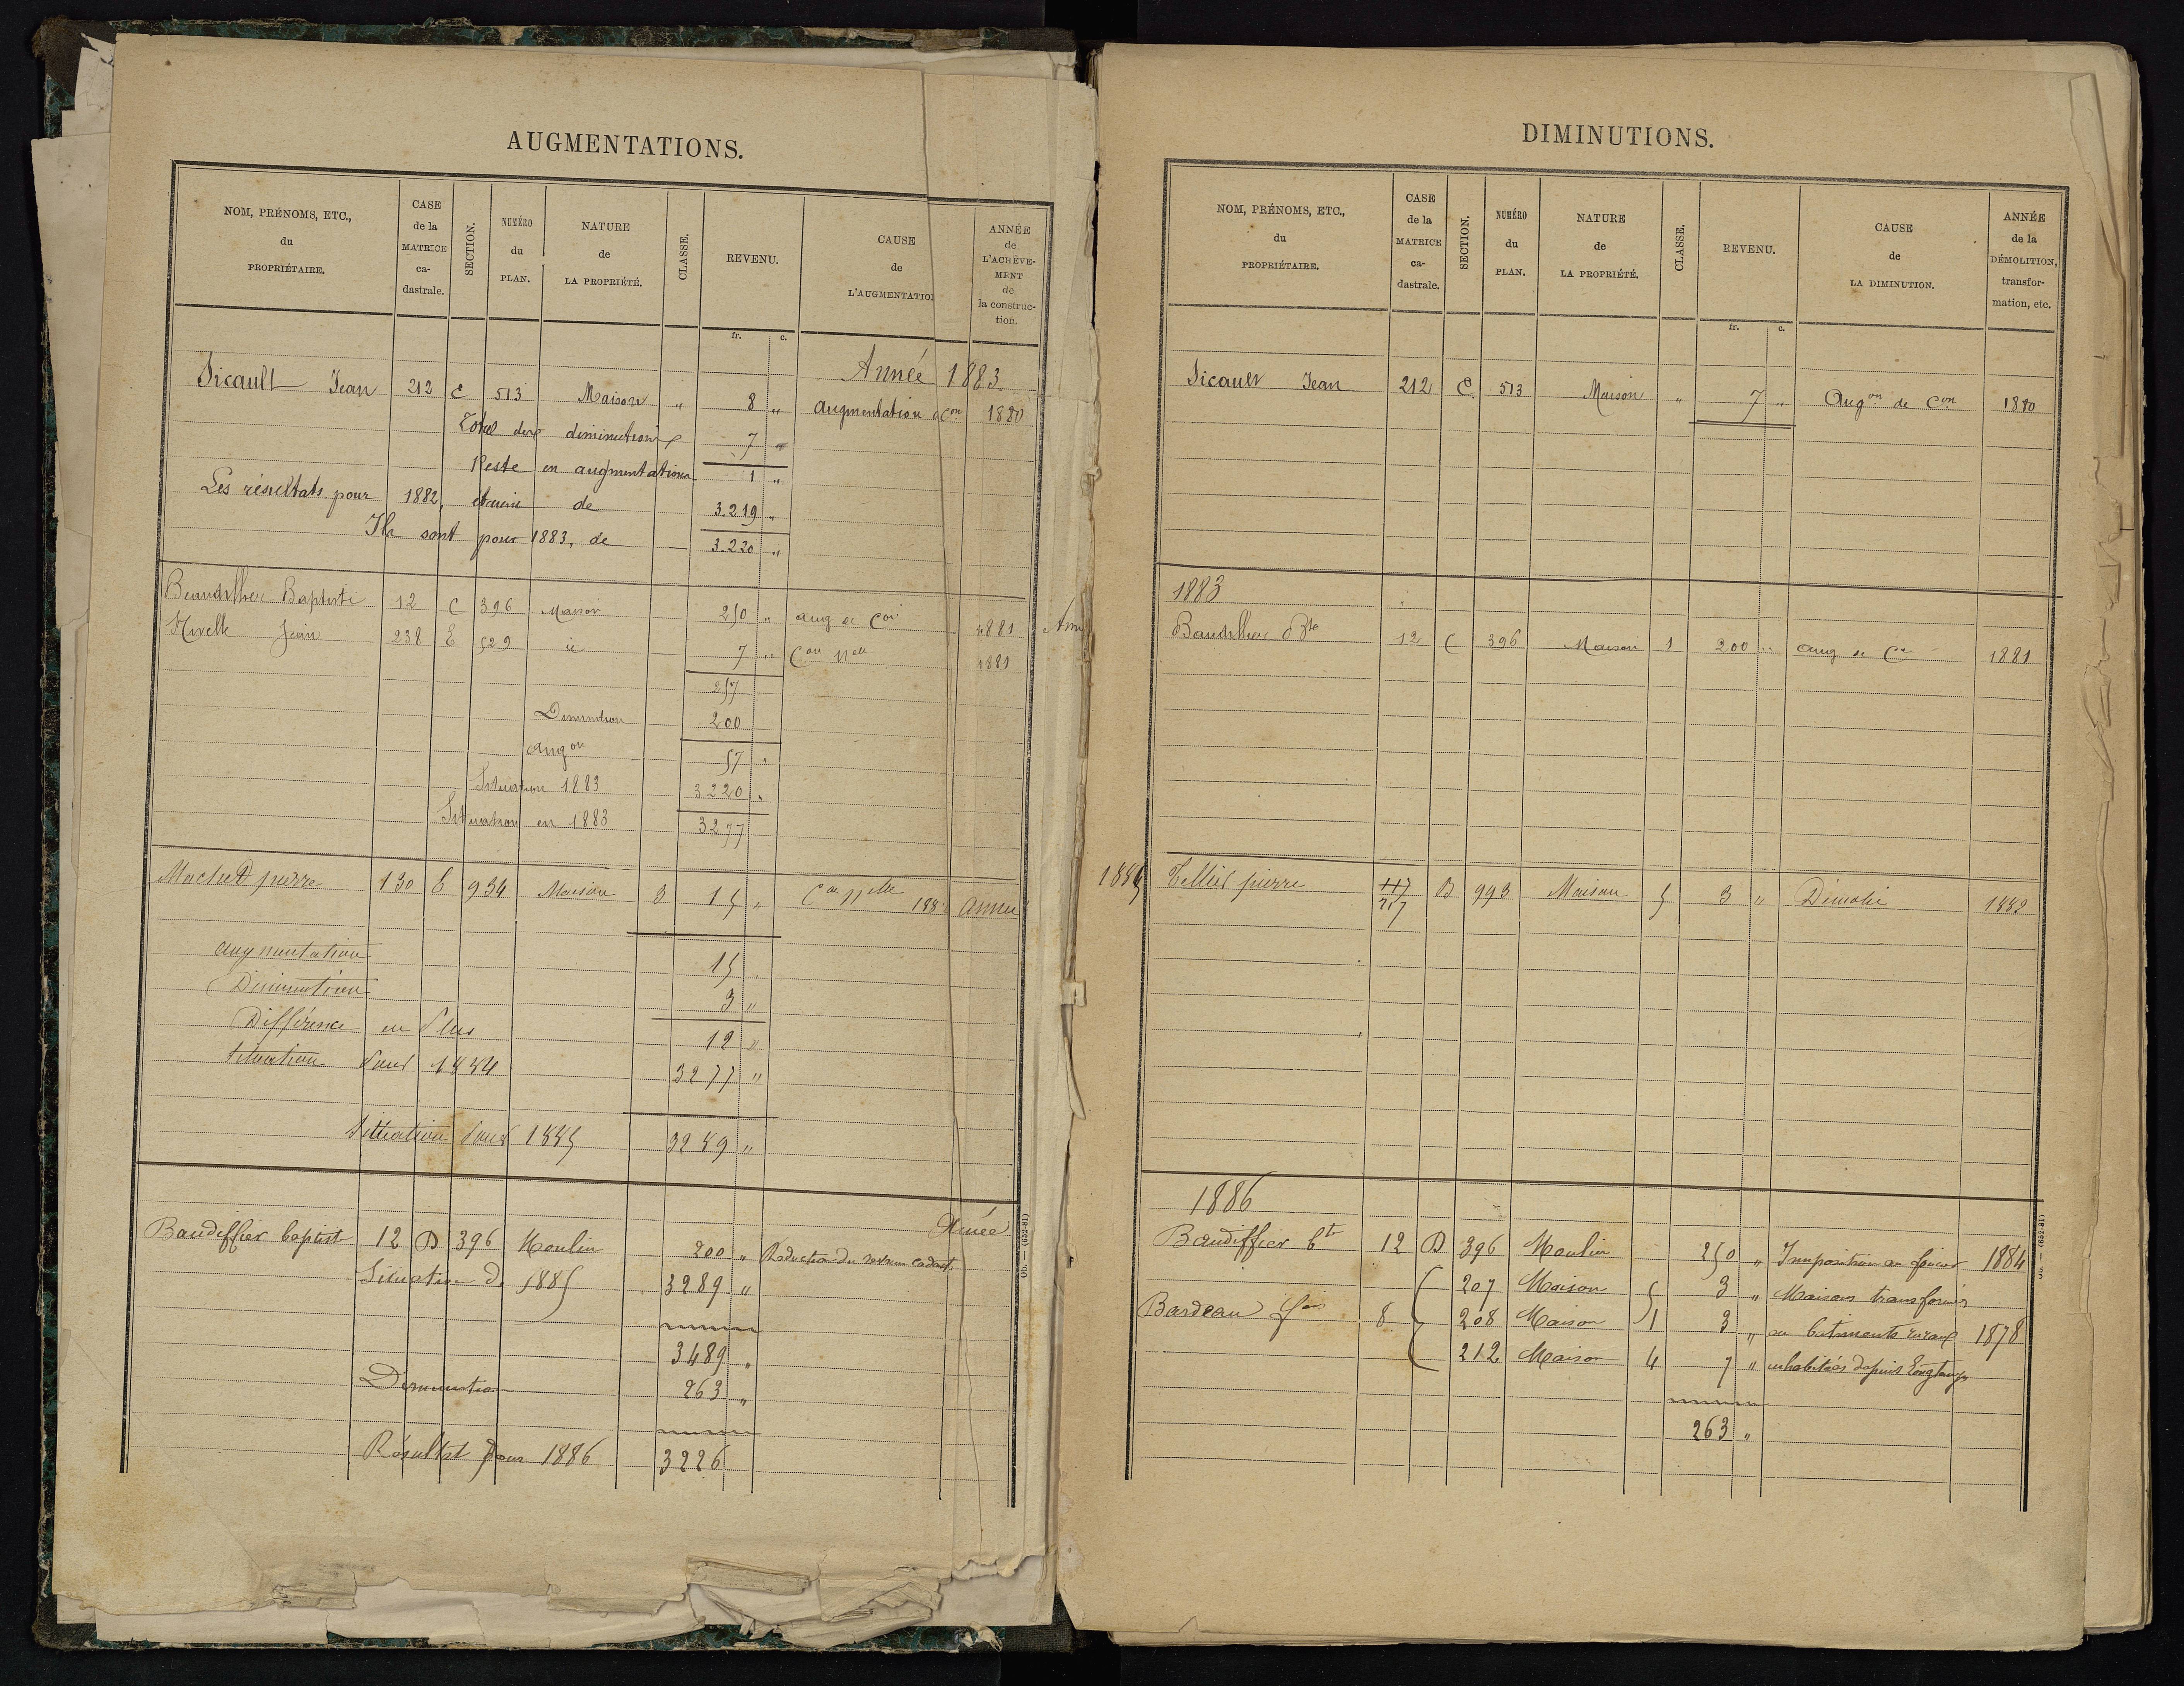 AUGMENTATIONS.
NOM, PRÉNOMS, ETC., du PROPRIÉTAIRE.
CASE de la MATRICE ca-dastrale.
SECTION.
NUMÉRO du PLAN.
NATURE de LA PROPRIÉTÉ.
CLASSE.
REVENU.
CAUSE de L'AUGMENTATIO
ANNÉE de L'ACHÈVE-MENT de la construc-tion.
fr. c.
Année 1883.
Sicault Jean 212 C 513 Maison " 8 " Augmentation de Con 1880
Total des diminutions 7 "
Reste en augmentation 1 "
Les résultats pour 1882, étaient de 3.219 "
Ils sont pour 1883, de 3.220 "
Baptiste 12 C 396 Maison 250 " aug de Con 1881
Jean 238 E 529 id 7 " Con nelle 1881
257
Diminution 200
Augon 57 "
Situation 1883 3220 "
Situation en 1883 3277
pierre 130 E 934 Maison 3 15 " Con nelle 188 Année
augmentation 15 "
Diminution 3 "
Différence en Plus 12 "
Situation pour 1884 3277 "
Situation pour 1885 3289 "
Année
Baudiffier baptist 12 D 396 Moulin 200 " Reduction du revenu cadast.
Situation de 1885 3289 "
3489 "
Diminution 263 "
Résultat pour 1886 3226
Ob. — (652-81)
DIMINUTIONS.
NOM, PRÉNOMS, ETC., du PROPRIÉTAIRE.
CASE de la MATRICE ca-dastrale.
SECTION.
NUMÉRO du PLAN.
NATURE de LA PROPRIÉTÉ.
CLASSE.
REVENU.
CAUSE de LA DIMINUTION.
ANNÉE de la DÉMOLITION, transfor-mation, etc.
fr. c.
Sicault Jean 212 C 513 Maison " 7 " Augon de Con 1880
1883
Bte 12 C 396 Maison 1 200 " aug de Con 1881
1885 Tellier pierre 117 217 D 993 Maison 5 3 " Démolie 1882
1886
Baudiffier bt 12 D 396 Moulin 250 " Imposition au foncier 1884
207 Maison 5 3 " Maisons transformés
Bardeau fois 8 208 Maison 1 3 " en batiments ruraux 1878
212 Maison 4 7 " inhabitées depuis longtemps
263 "
Ob. — (652-81)